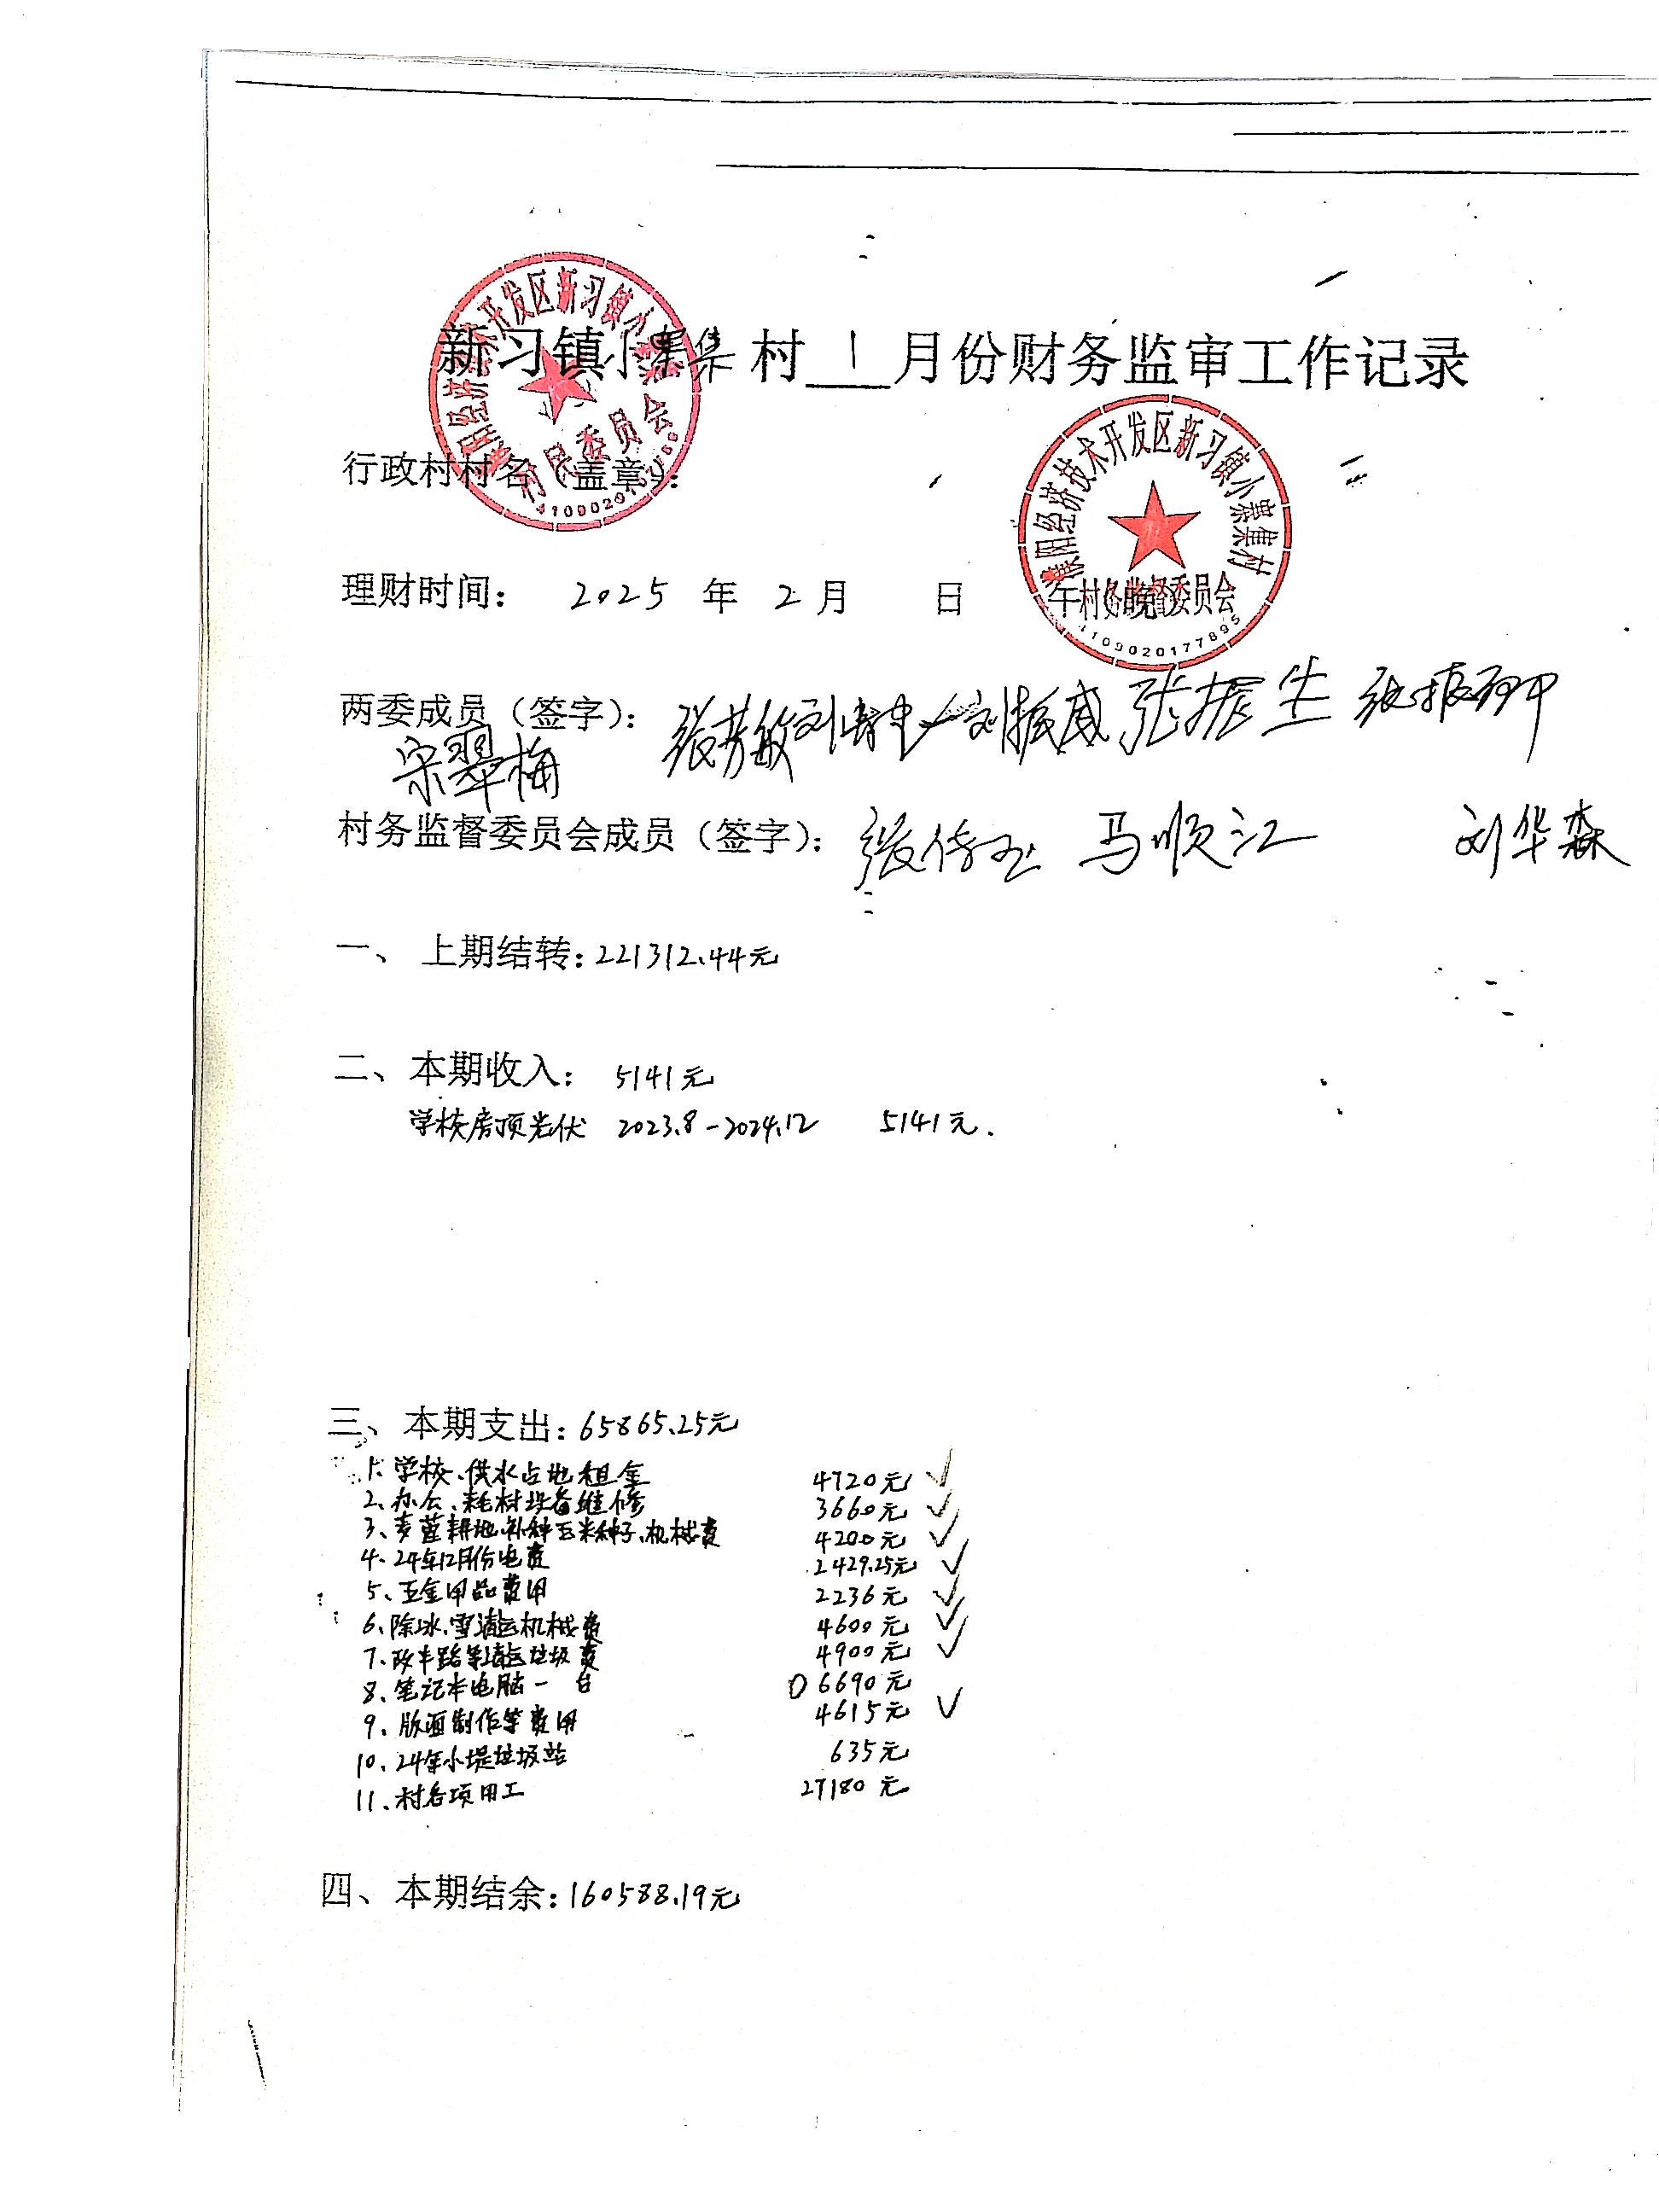 新习镇小寨集村 1 月份财务监审工作记录
濮阳经济技术开发区新习镇小寨集村
村民委员会
行政村村名（盖章）：
濮阳经济技术开发区新习镇小寨集村
村务监督委员会
4109020177895
理财时间： 2025 年 2 月 日 午 晚
两委成员（签字）： 张芳敏 刘振威 张振生
宋翠梅
村务监督委员会成员（签字）： 张传玉 马顺江 刘华森
一、 上期结转：221312.44元
二、本期收入： 5141元
学校房顶光伏 2023.8-2024.12 5141元.
三、本期支出：65865.25元
1、学校、供水占地租金 4720元 ✓
2、办公、耗材设备维修 3660元 ✓
3、麦茬耕地、补种玉米种子、机械费 4200元 ✓
4、24年12月份电费 2429.25元 ✓
5、五金用品费用 2236元 ✓
6、除冰、雪清运机械费 4600元 ✓
7、路等清运垃圾费 4900元 ✓
8、笔记本电脑一台 6690元
9、版面制作等费用 4615元 ✓
10、24年小堤垃圾站 635元
11、村各项用工 27180元
四、本期结余：160588.19元